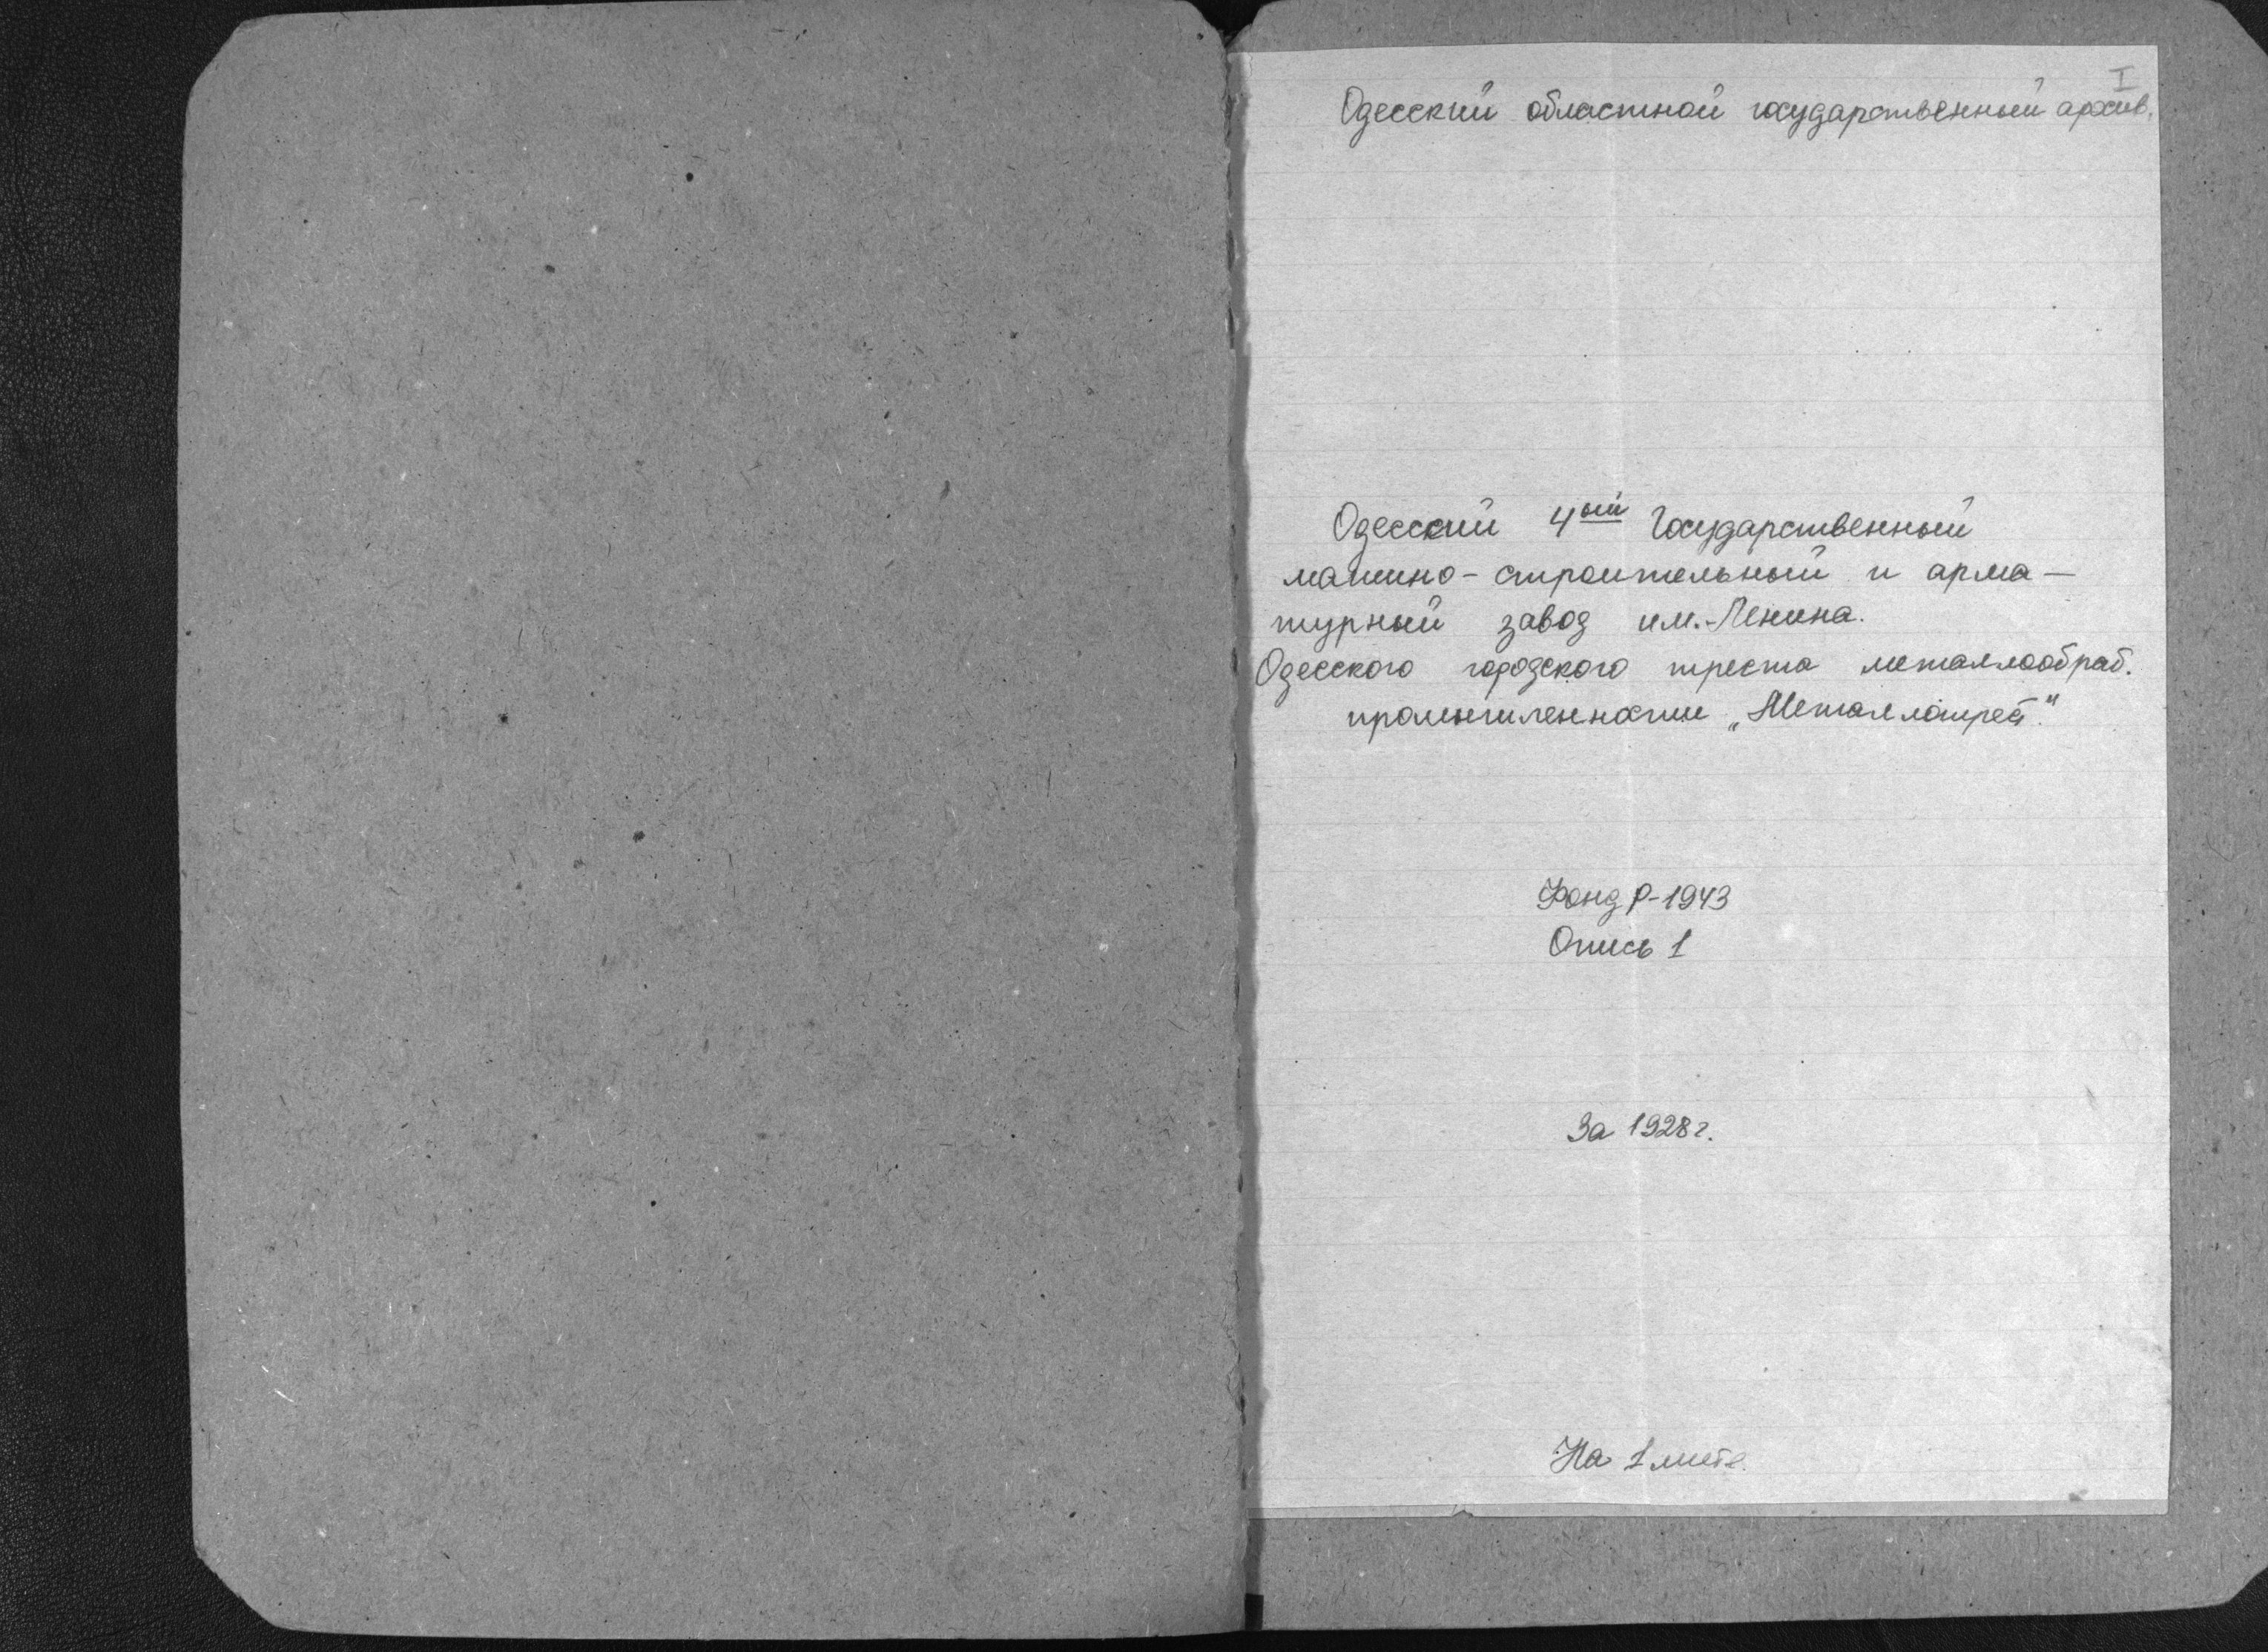 I
Одесский областной государственный архив.
Одесский 4ый Государственный
машино-строительный и арма-
турный завод им. Ленина.
Одесского городского треста металлообраб.
промышленности „Металлотрест."
Фонд Р-1943
Опись 1
За 1928 г.
На 1 листе.